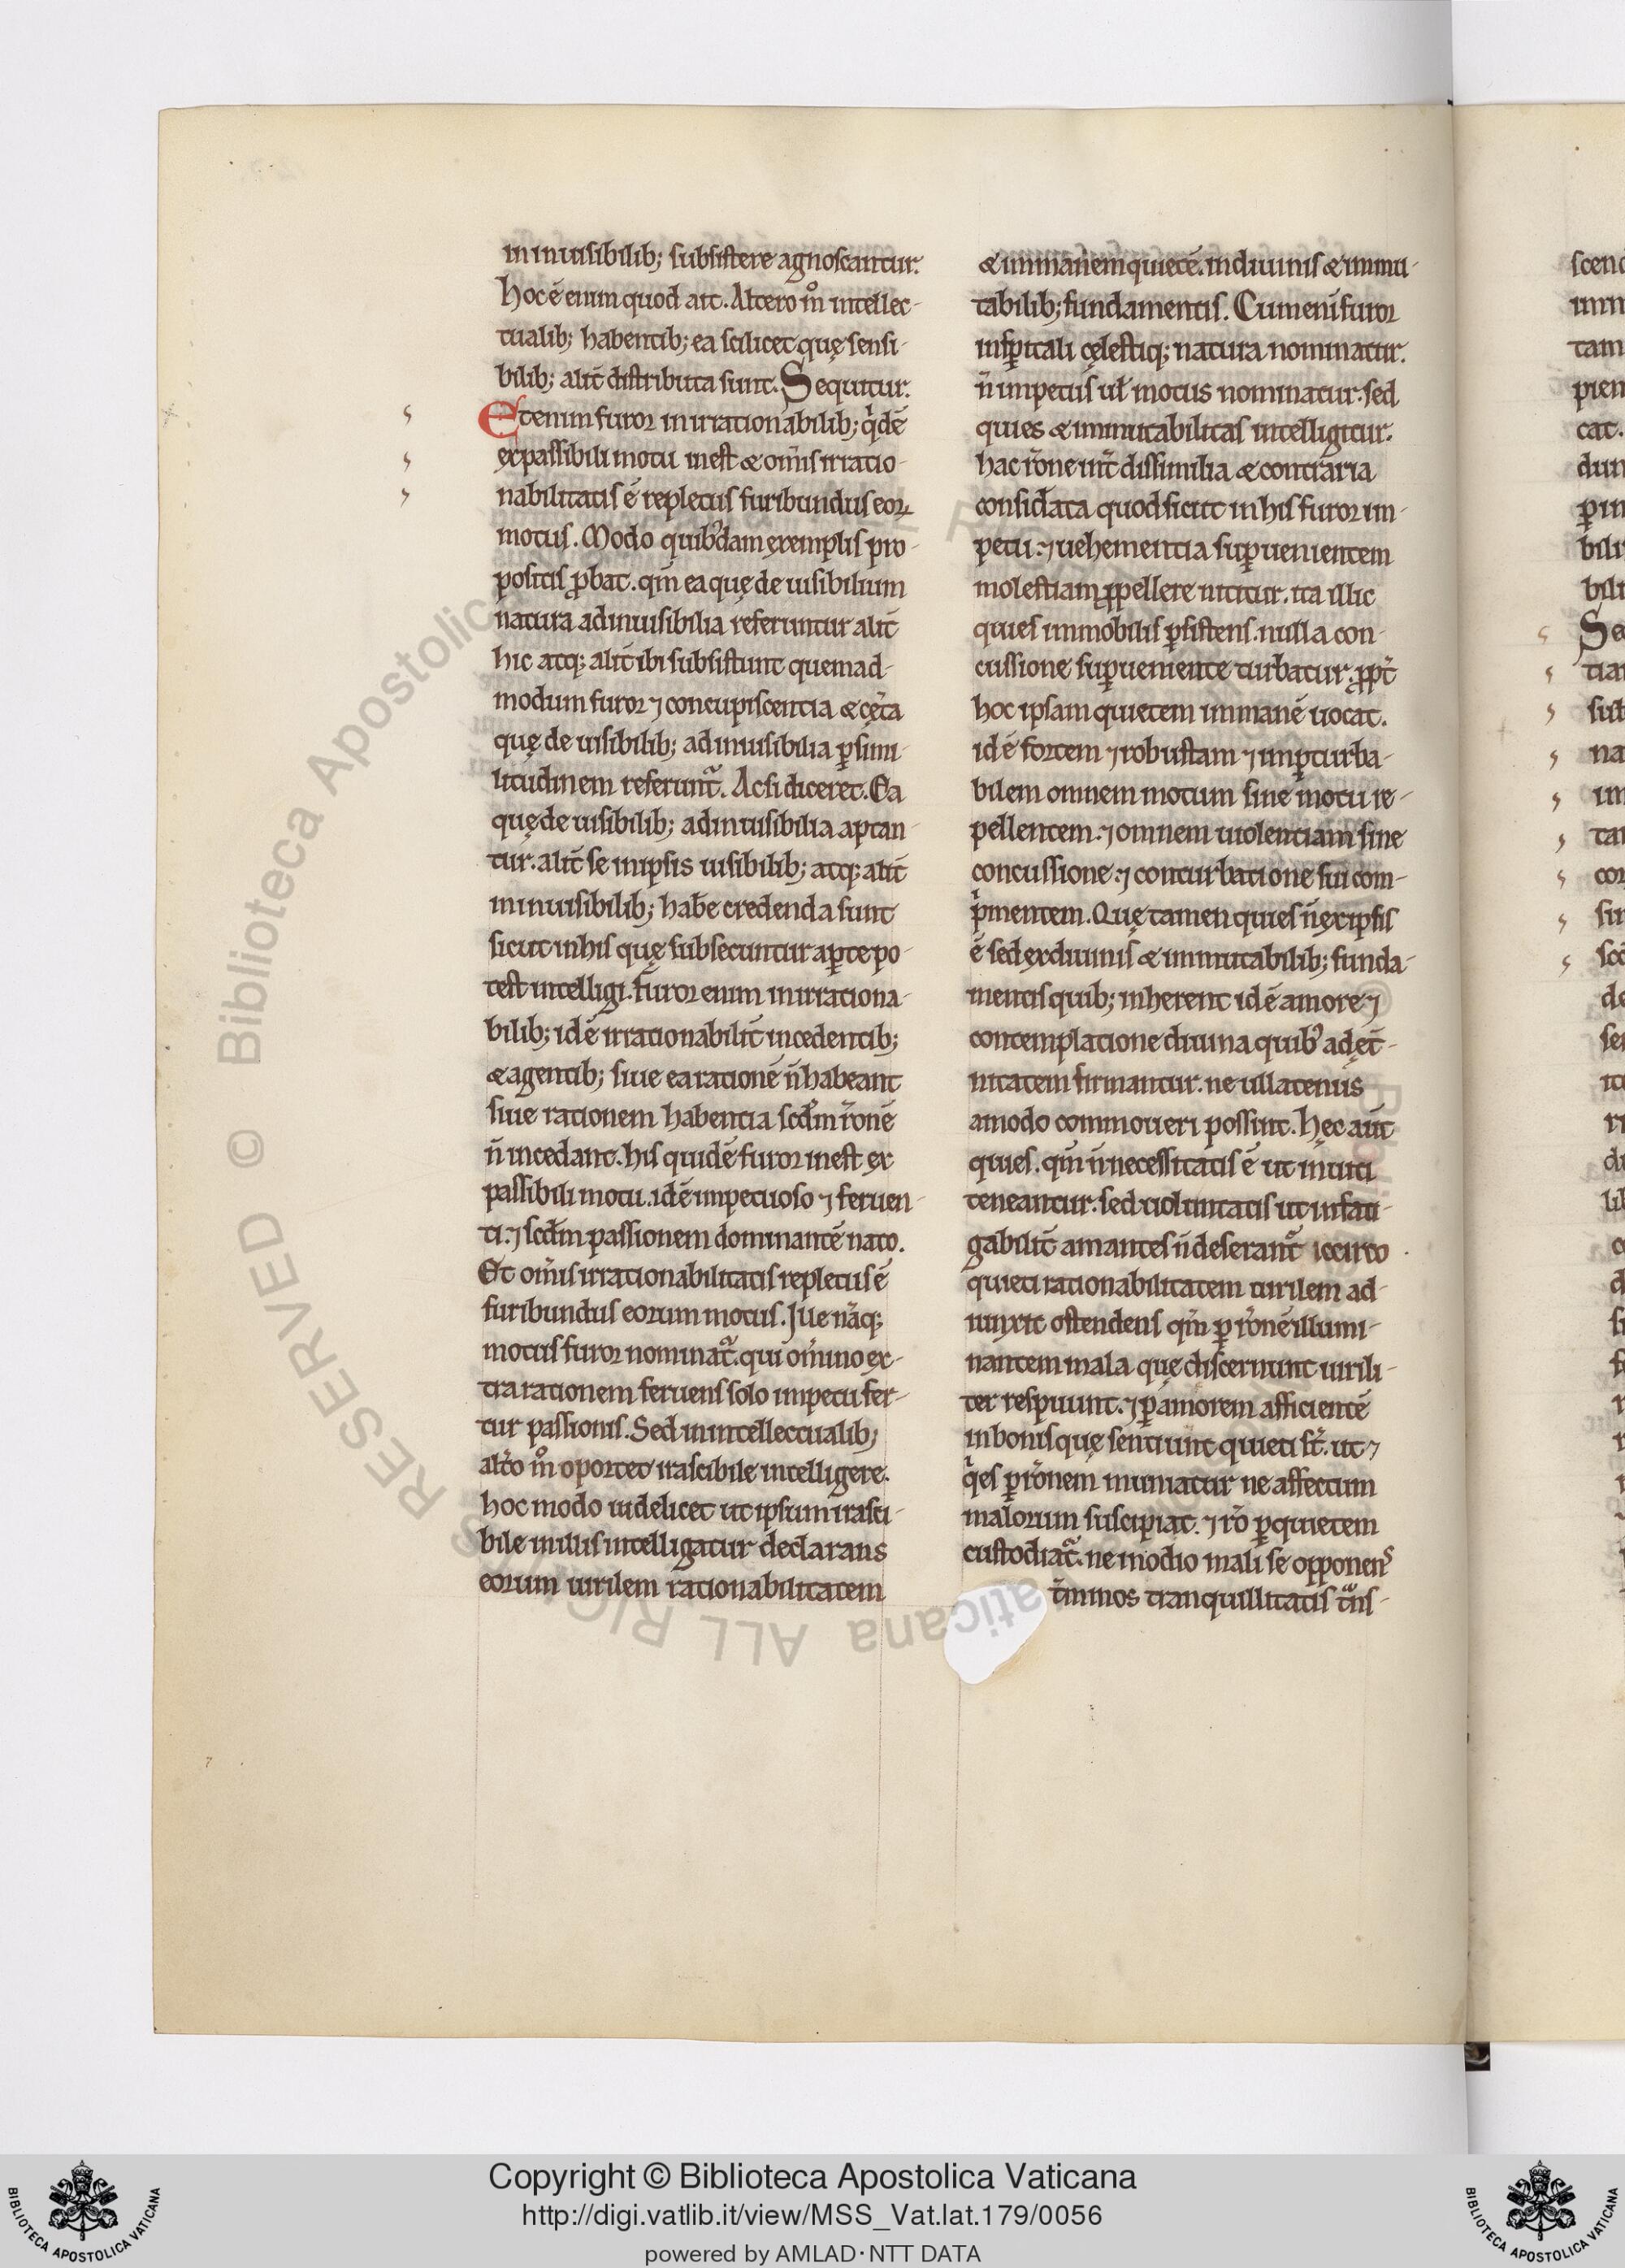 in inuisibilib; subsistere agnoscantur.
hoc ē enim quod ait. Altero m̊ intellec-
tualib; habentib; ea scilicet quę sensi-
bilib; alit̄ distributa sunt. Sequitur.
Etenim furor in irrationabilib; q̇dē
ex passibili motu inest & om̄is irratio-
nabilitatis ē repletus furibundus eoꝝ
motus. Modo quibᵈdam exemplis pro-
positis ꝓbat. qm̄ ea quę de uisibilium
natura ad inuisibilia referuntur alit̄
hic atq; alit̄ ibi subsistunt quemad-
modum furor ⁊ concupiscentia & cęt̄a
quę de uisibilib; ad inuisibilia ꝑ simi-
litudinem referunt᷑. Ac si diceret. Ea
quę de uisibilib; ad inuisibilia aptan-
tur. alit̄ se in ipsis uisibilib; atq; alit̄
in inuisibilib; habe credenda sunt
sicut in his quę subsecuntur aꝑte po-
test intelligi. Furor enim in irrationa-
bilib; id ē irrationabilit̄ incedentib;
& agentib; siue ea rationē n̄ habeant
siue rationem habentia scdm̄ r̄onē
n̄ incedant. his quidē furor inest ex
passibili motu. id ē impetuoso ⁊ feruen-
ti. ⁊ scdm̄ passionem dominantē nato.
Et om̄is irrationabilitatis repletus ē
furibundus eorum motus. Ille nāq;
motus furor nominat᷑. qui om̄ino ex-
tra rationem feruens solo impetu fer-
tur passionis. Sed in intellectualib;
alt̄o m̊ oportet irascibile intelligere.
hoc modo uidelicet ut ipsum irasci-
bile in illis intelligatur declarans
eorum uirilem rationabilitatem
& immanem quietē. in diuinis & immu-
tabilib; fundamentis. Cum enī furor
in sp̄itali cęlestiq; natura nominatur.
n̄ impetus ul̄ motus nominatur. sed
quies & immutabilitas intelligitur.
hac r̄one int̄ dissimilia & contraria
consid̄ata quod sicut in his furor im-
petu. ⁊ uehementia suꝑuenientem
molestiam ꝓpellere nititur. ita illic
quies immobilis ꝑsistens. nulla con-
cussione suꝑueniente turbatur. ꝓpt̄
hoc ipsam quietem immanē uocat.
id ē fortem ⁊ robustam ⁊ imꝑturba-
bilem omnem motum sine motu re-
pellentem. ⁊ omnem uiolentiam sine
concussione. ⁊ conturbatione sui com-
p̄mentem. Quę tamen quies n̄ ex ipsis
ē sed ex diuinis & immutabilib; funda-
mentis quib; inherent id ē amore ⁊
contemplatione diuina quibᵒ ad ęt̄-
nitatem firmantur. ne ullatenus
amodo commoueri possint. hęc aūt
quies. qm̄ n̄ necessitatis ē ut inuiti
teneantur. sed uoluntatis ut infati-
gabilit̄ amantes n̄ deserant᷑ iccirco
quieti rationabilitatem uirilem ad-
iunxit ostendens qm̄ ꝑ r̄onē illumi-
nantem mala quę discernunt uirili-
ter respuunt. ⁊ ꝑ amorem afficientē
in bonis quę sentiunt quieti st̄. ut ⁊
q̇es ꝑ r̄onem muniatur ne affectum
malorum suscipiat. ⁊ r̄o ꝑ quietem
custodiat᷑. ne in odio mali se opponens
t̄minos tranquillitatis t̄ns-
scend
tam
pien
cat.
bili
bili
tian
sub
na
im
tan
con
sin
Copyright © Biblioteca Apostolica Vaticana
http://digi.vatlib.it/view/MSS_Vat.lat.179/0056
powered by AMLAD·NTT DATA
BIBLIOTECA APOSTOLICA VATICANA
BIBLIOTECA APOSTOLICA VATICANA
© Biblioteca Apostolica Vaticana ALL RIGHTS RESERVED